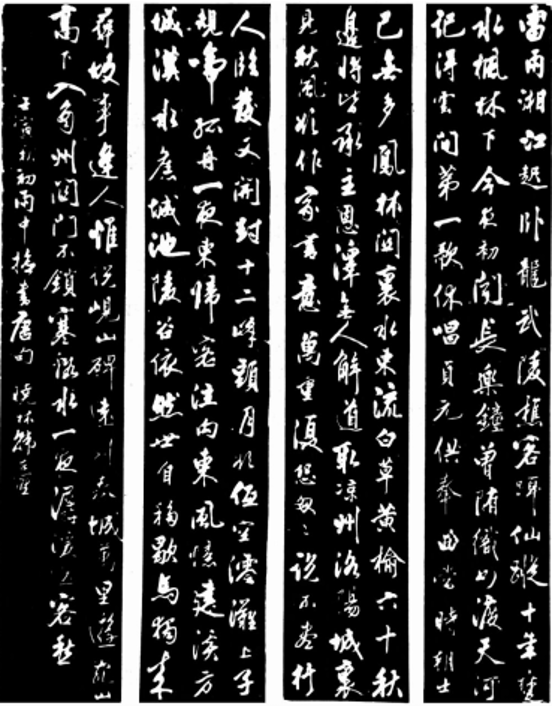 雷雨湘江起卧龍武陵樵客躡仙蹤十年楚
水楓林下今夜初聞長樂鐘曾隨織女渡天河
記得雲間第一歌休唱貞元供奉曲當時朝士
已無多鳳林關裏水東流白草黃榆六十秋
邊將皆承主恩澤無人解道取凉州洛陽城裏
見秋風欲作家書意萬重復恐匆匆說不盡行
人臨發又開封十二峰頭月欲低空澪灘上子
規啼孤舟一夜東歸客泣向東風憶建溪方
城漢水舊城池陵谷依然世自移歇馬獨來
尋故事逢人惟說峴山碑遠別秦城萬里遊亂山
高下入商州關門不鎖寒溪水一夜潺湲送客愁
壬寅秋初雨中摘書唐句 曉林